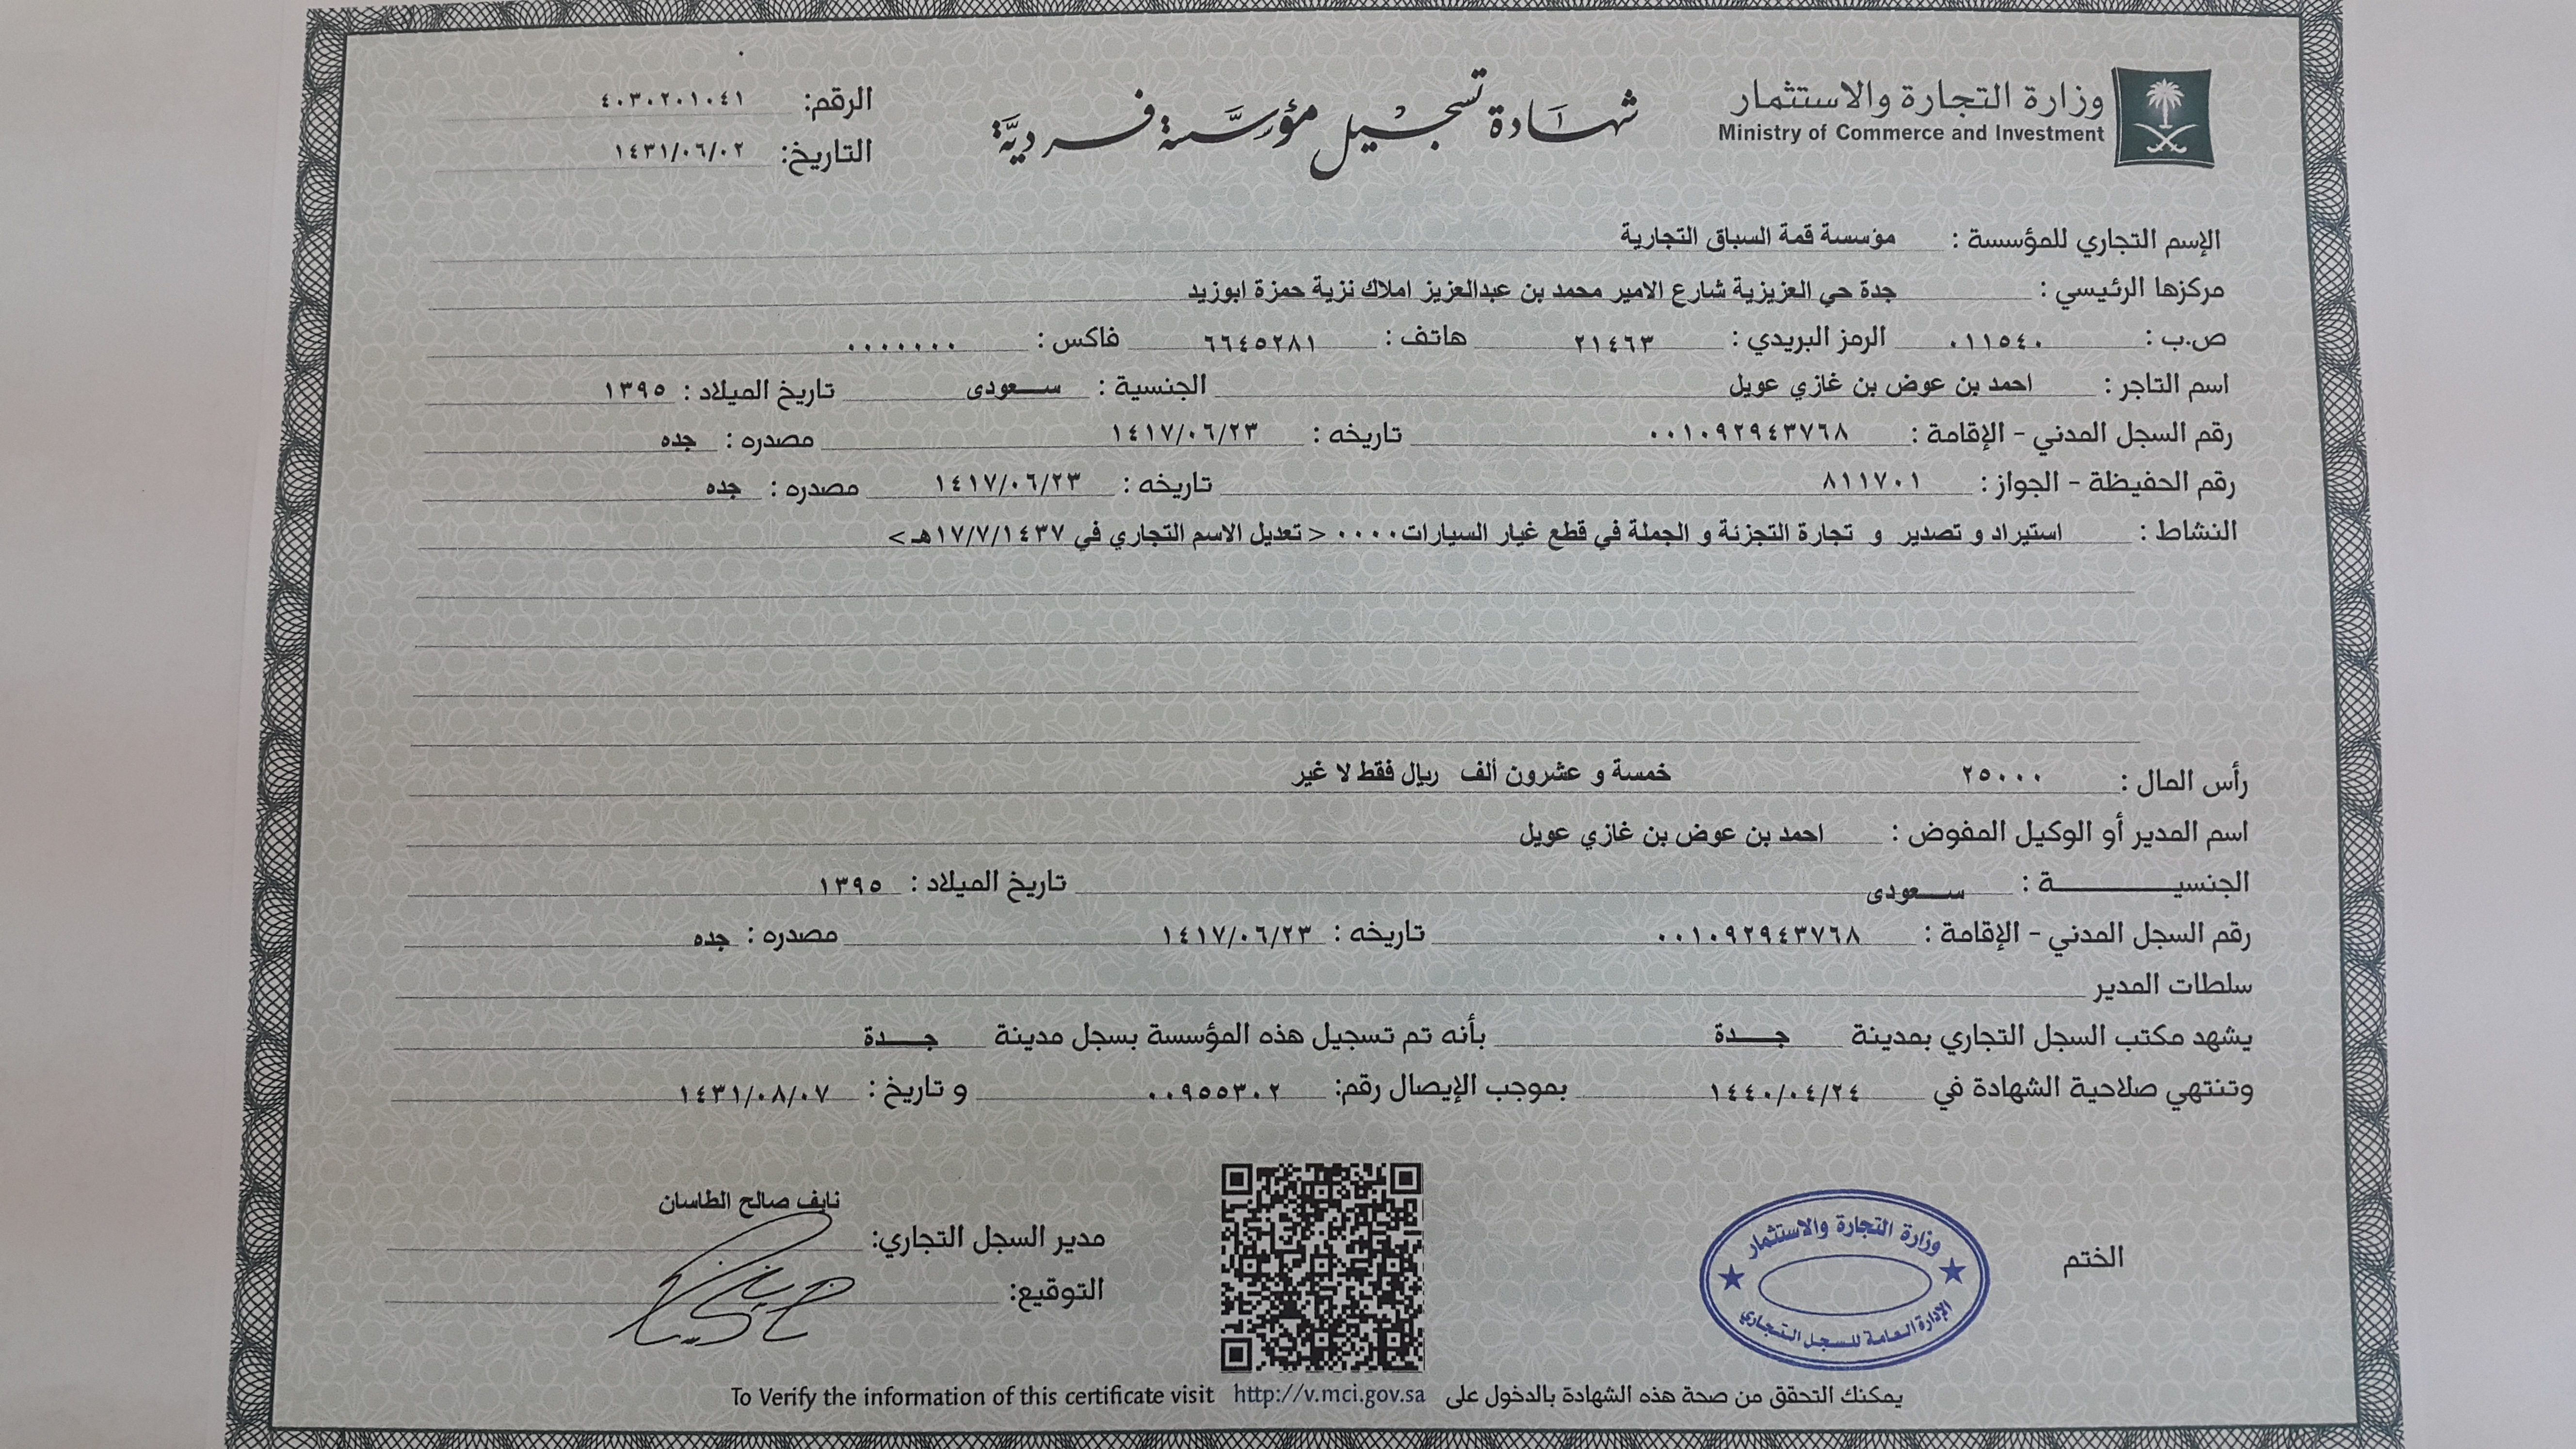 وزارة التجارة والاستثمار
Ministry of Commerce and Investment
شهادة تسجيل مؤسسة فردية
الرقم: ٤٠٣٠٢٠١٠٤١
التاريخ: ١٤٣١/٠٦/٠٢
الإسم التجاري للمؤسسة : مؤسسة قمة السباق التجارية
مركزها الرئيسي : جدة حي العزيزية شارع الامير محمد بن عبدالعزيز املاك نزية حمزة ابوزيد
ص.ب : ٠١١٥٤٠ الرمز البريدي : ٢١٤٦٣ هاتف : ٦٦٤٥٢٨١ فاكس : ٠٠٠٠٠٠٠
اسم التاجر : احمد بن عوض بن غازي عويل الجنسية : سعودى تاريخ الميلاد : ١٣٩٥
رقم السجل المدني - الإقامة : ٠٠١٠٩٢٩٤٣٧٦٨ تاريخه : ١٤١٧/٠٦/٢٣ مصدره : جده
رقم الحفيظة - الجواز : ٨١١٧٠١ تاريخه : ١٤١٧/٠٦/٢٣ مصدره : جده
النشاط : استيراد و تصدير و تجارة التجزئة و الجملة في قطع غيار السيارات٠٠٠٠ < تعديل الاسم التجاري في ١٧/٧/١٤٣٧هـ >
رأس المال : ٢٥٠٠٠ خمسة و عشرون ألف ريال فقط لا غير
اسم المدير أو الوكيل المفوض : احمد بن عوض بن غازي عويل
الجنسيـــــــة : سعودى تاريخ الميلاد : ١٣٩٥
رقم السجل المدني - الإقامة : ٠٠١٠٩٢٩٤٣٧٦٨ تاريخه : ١٤١٧/٠٦/٢٣ مصدره : جده
سلطات المدير
يشهد مكتب السجل التجاري بمدينة جـــدة بأنه تم تسجيل هذه المؤسسة بسجل مدينة جـــدة
وتنتهي صلاحية الشهادة في ١٤٤٠/٠٤/٢٤ بموجب الإيصال رقم: ٠٠٩٥٥٣٠٢ و تاريخ : ١٤٣١/٠٨/٠٧
الختم
وزارة التجارة والاستثمار
الإدارة العامة للسجل التجاري
نايف صالح الطاسان
مدير السجل التجاري:
التوقيع:
يمكنك التحقق من صحة هذه الشهادة بالدخول على http://v.mci.gov.sa To Verify the information of this certificate visit